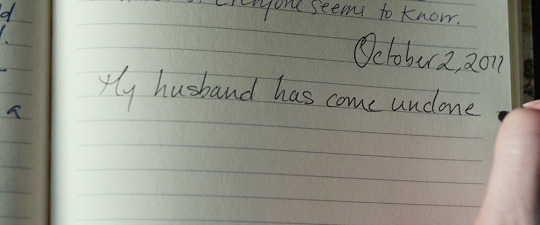 Everyone seems to know.
October 2, 2011
My husband has come undone
a